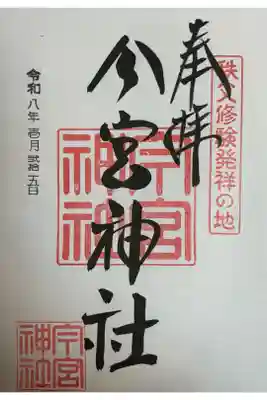 秩父修験発祥の地
奉拝
今宮神社
今宮神社
令和八年壱月弐拾五日
今宮神社